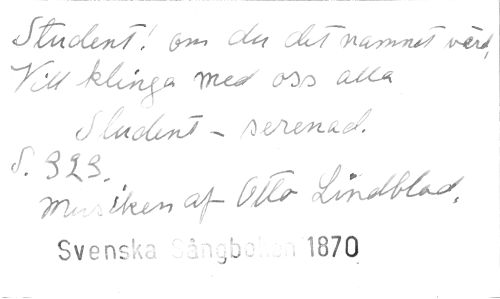 Student! om du det namnet värd,
Vill klinga med oss alla
Student - serenad.
S. 323.
Musiken af Otto Lindblad.
Svenska Sångboken 1870